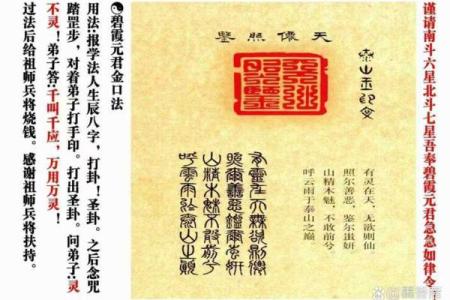 谨请南斗六星北斗七星吾奉碧霞元君急急如律令
天僊照鑒
泰山玉印文
有灵在天，无欲则仙
照尔善恶，鉴尔蚩妍
山精木魅，不敢前兮
呼云雨于泰山之巅。
碧霞元君金口法
用法:报学法人生辰八字，打卦!圣卦。之后念咒
踏罡步，对着弟子打手印。打出圣卦。问弟子:灵
不灵!弟子答:千叫千应，万用万灵!
过法后给祖师兵将烧钱。感谢祖师兵将扶持。